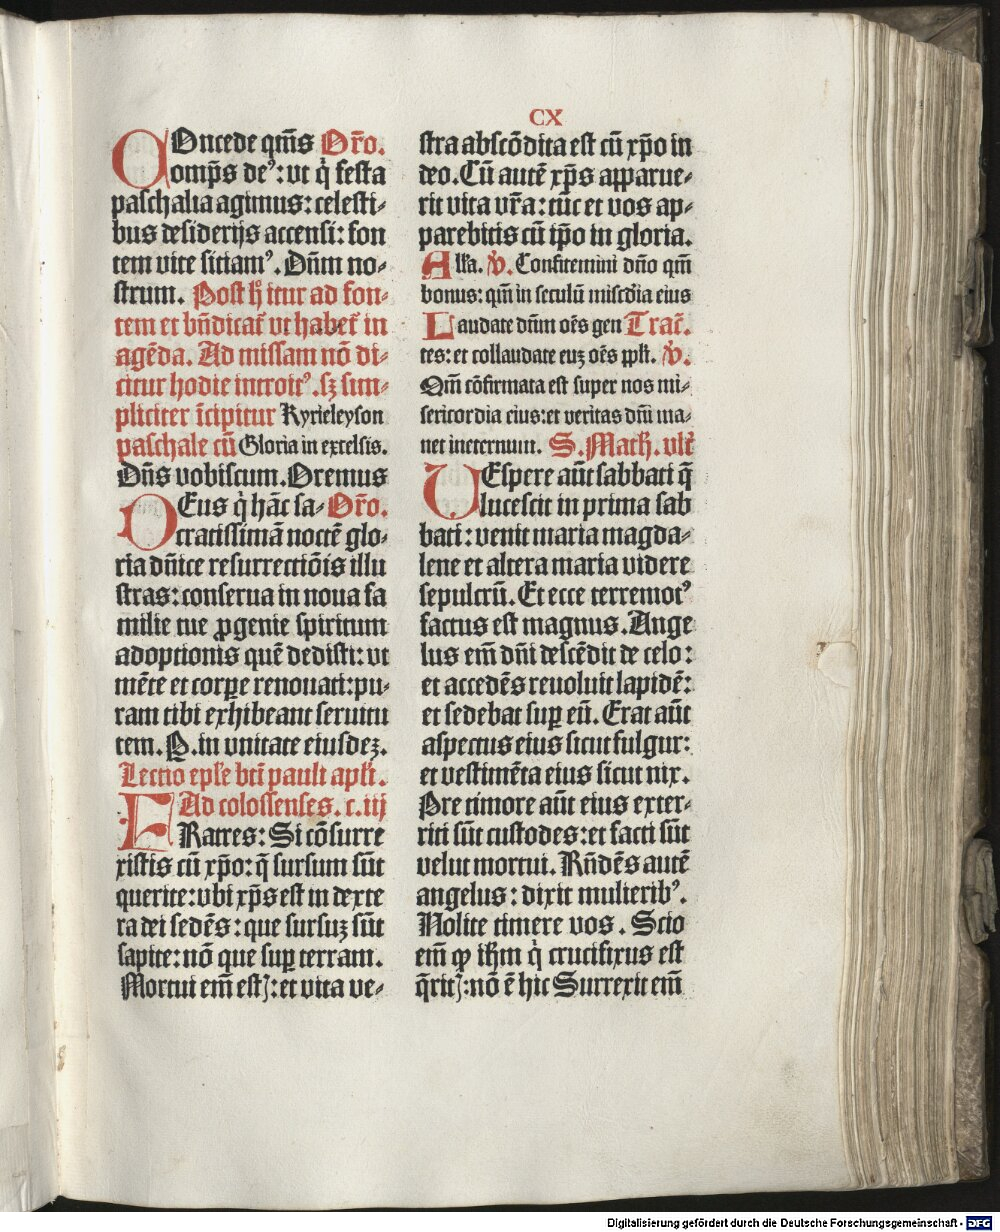 CX
COncede qm̄s Or̄o.
omp̄s deꝰ: vt q̇ festa
paschalia agimus: celesti⸗
bus desiderijs accensi: fon
tem vite sitiamꝰ. Dn̄m no⸗
strum. Post ḣ itur ad fon⸗
tem et bn̄dicat᷑ vt habet᷑ in
agēda. Ad missam nō di⸗
citur hodie introitꝰ. sꝫ sim⸗
pliciter īcipitur Kyrieleyson
paschale cū Gloria in excelsis.
Dn̄s vobiscum. Oremus
DEus q̇ hāc sa⸗ Or̄o.
cratissimā noctē glo⸗
ria dn̄ice resurrectiōis illu
stras: conserua in noua fa
milie tue ꝓgenie spiritum
adoptionis quē dedisti: vt
mēte et corpe renouati: pu⸗
ram tibi exhibeant seruitu
tem. P. in vnitate eiusdeꝫ.
Lectio ep̄le bt̄i pauli apl̄i.
Ad colossenses. c. iij
FRatres: Si cōsurre
xistis cū xp̄o: q̄ sursum sūt
querite: vbi xp̄s est in dexte
ra dei sedēs: que sursuꝫ sūt
sapite: nō que suꝑ terram.
Mortui em̄ est]: et vita ve⸗
stra abscōdita est cū xp̄o in
deo. Cū autē xp̄s apparue⸗
rit vita vr̄a: tūc et vos ap⸗
parebitis cū ip̄o in gloria.
Allā. v̇. Confitemini dn̄o qm̄
bonus: qm̄ in seculū misc̄dia eius
Laudate dn̄m oēs gen Tract̄.
tes: et collaudate euꝫ oēs ppl̄i. v̇.
Qm̄ cōfirmata est super nos mi⸗
sericordia eius: et veritas dn̄i ma⸗
net ineternum. S. Math. vlt̄
VEspere aūt sabbati q̄
lucescit in prima sab
bati: venit maria magda⸗
lene et altera maria videre
sepulcrū. Et ecce terremotꝰ
factus est magnus. Ange
lus em̄ dn̄i descēdit de celo:
et accedēs reuoluit lapidē:
et sedebat suꝑ eū. Erat aūt
aspectus eius sicut fulgur:
et vestimēta eius sicut nix.
Pre timore aūt eius exter⸗
riti sūt custodes: et facti sūt
velut mortui. Rn̄dēs autē
angelus: dixit mulieribꝰ.
Nolite timere vos. Scio
em̄ ꝙ ih̄m q̇ crucifixus est
q̄rit]: nō ē hic Surrexit em̄
Digitalisierung gefördert durch die Deutsche Forschungsgemeinschaft - DFG